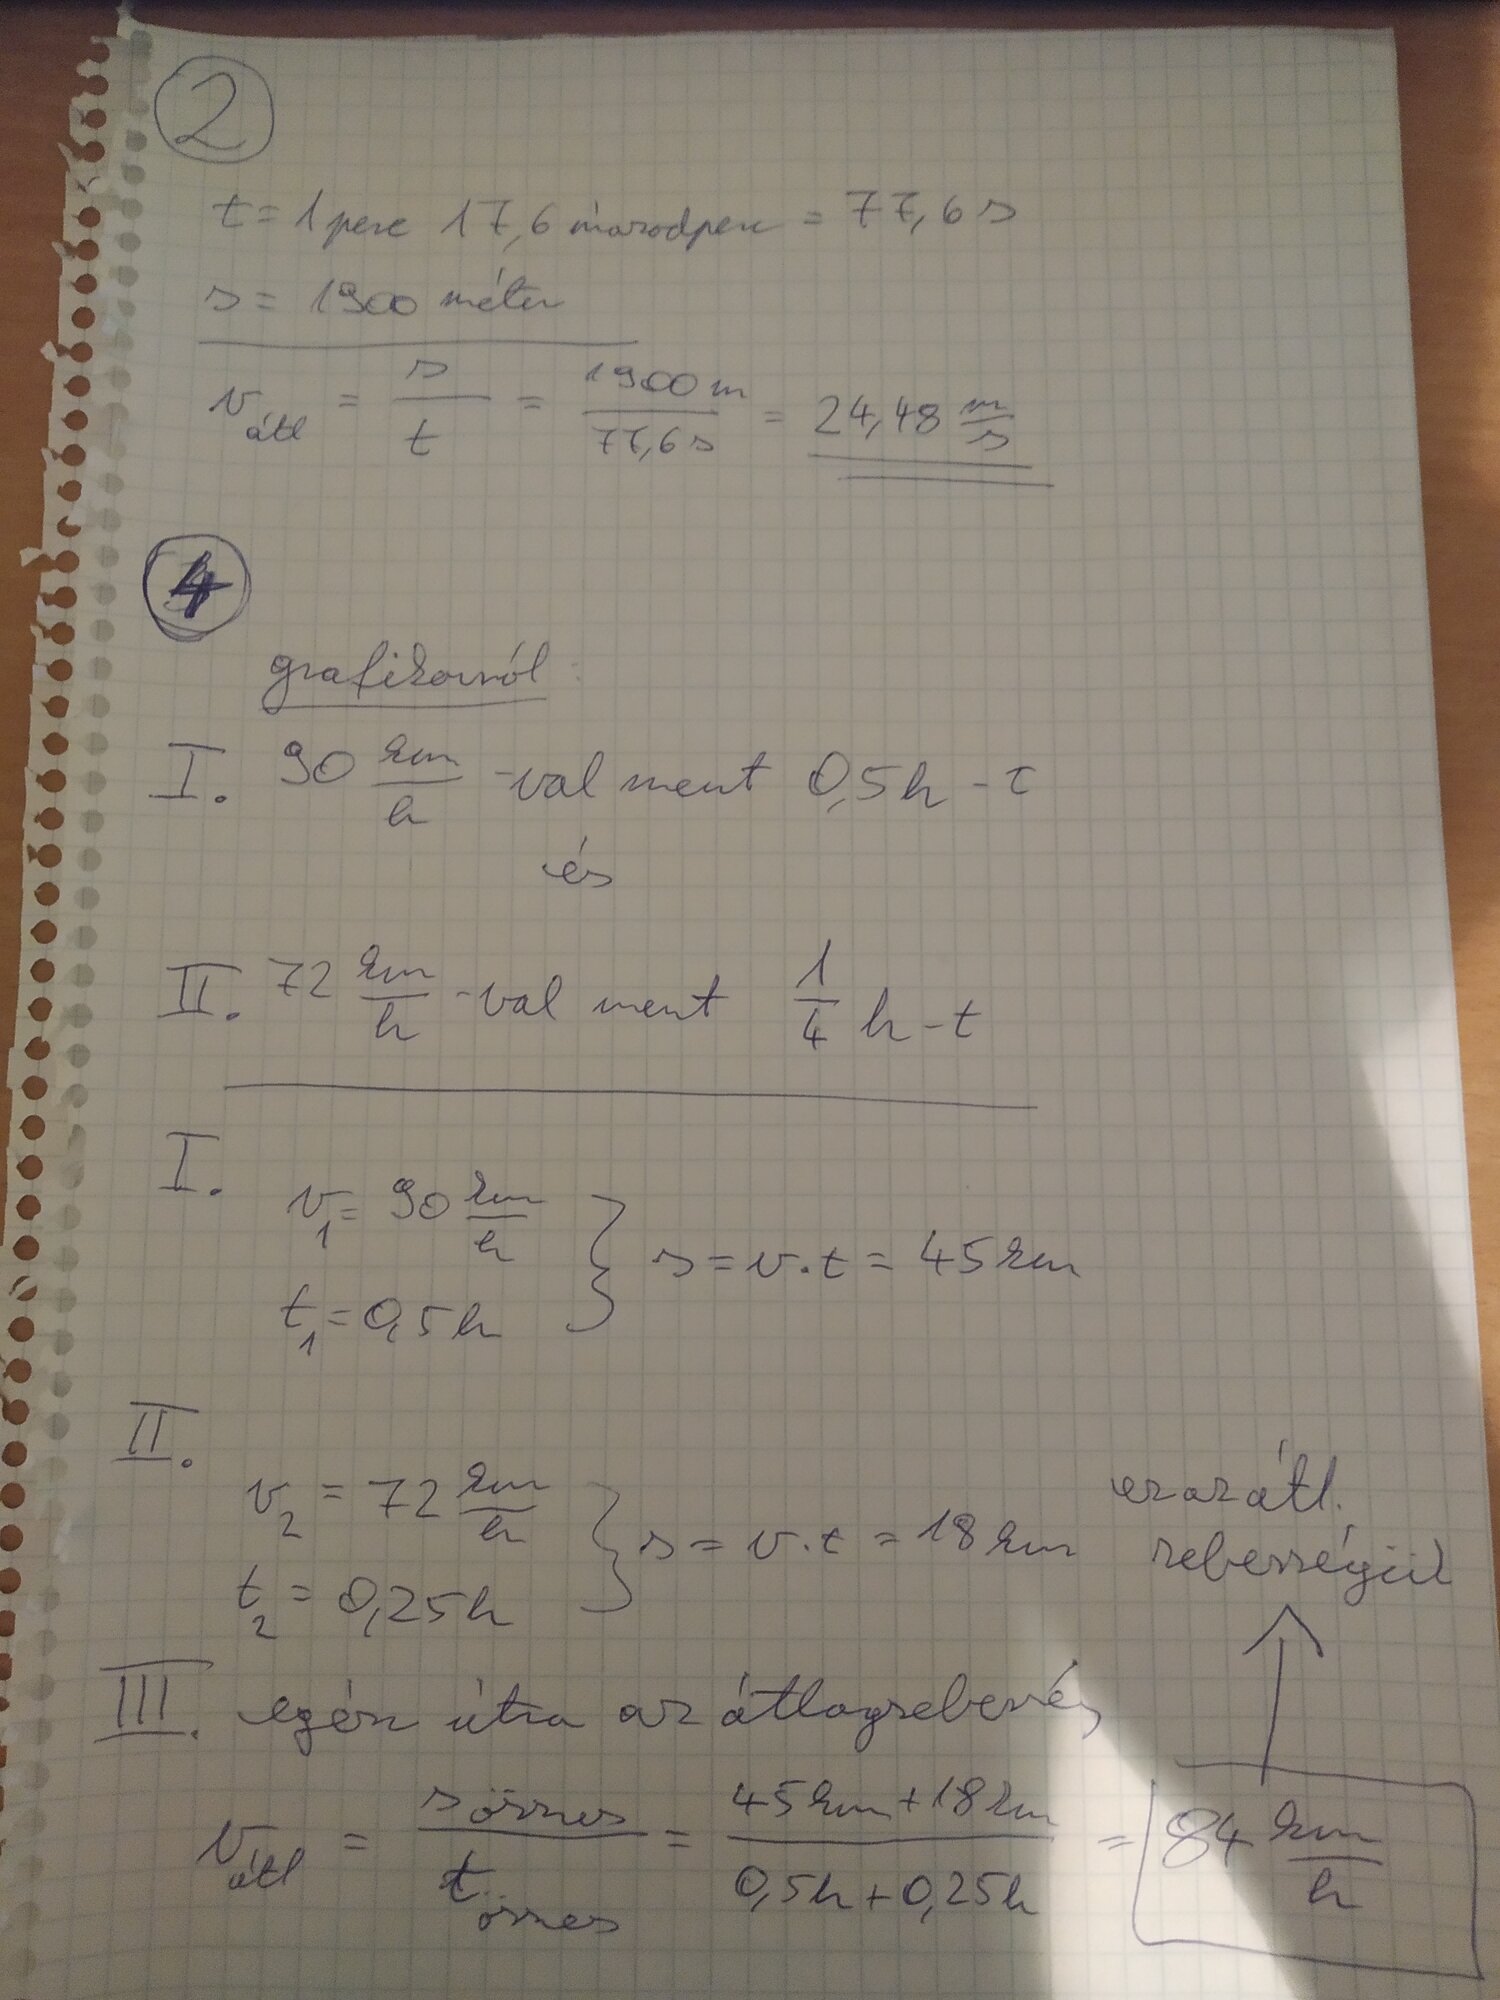 2
t = 1 perc 17,6 másodperc = 77,6 s
s = 1900 méter
v átl = s/t = 1900 m/77,6 s = 24,48 m/s
4
grafikonról:
I. 90 km/h -val ment 0,5 h - t
és
II. 72 km/h -val ment 1/4 h - t
I.
v₁ = 90 km/h } s = v·t = 45 km
t₁ = 0,5 h
II.
v₂ = 72 km/h } s = v·t = 18 km
t₂ = 0,25 h
ez az átl.
sebességük
III. egész útra az átlagsebesség
v átl = s összes/t összes = 45 km + 18 km/0,5 h + 0,25 h = 84 km/h